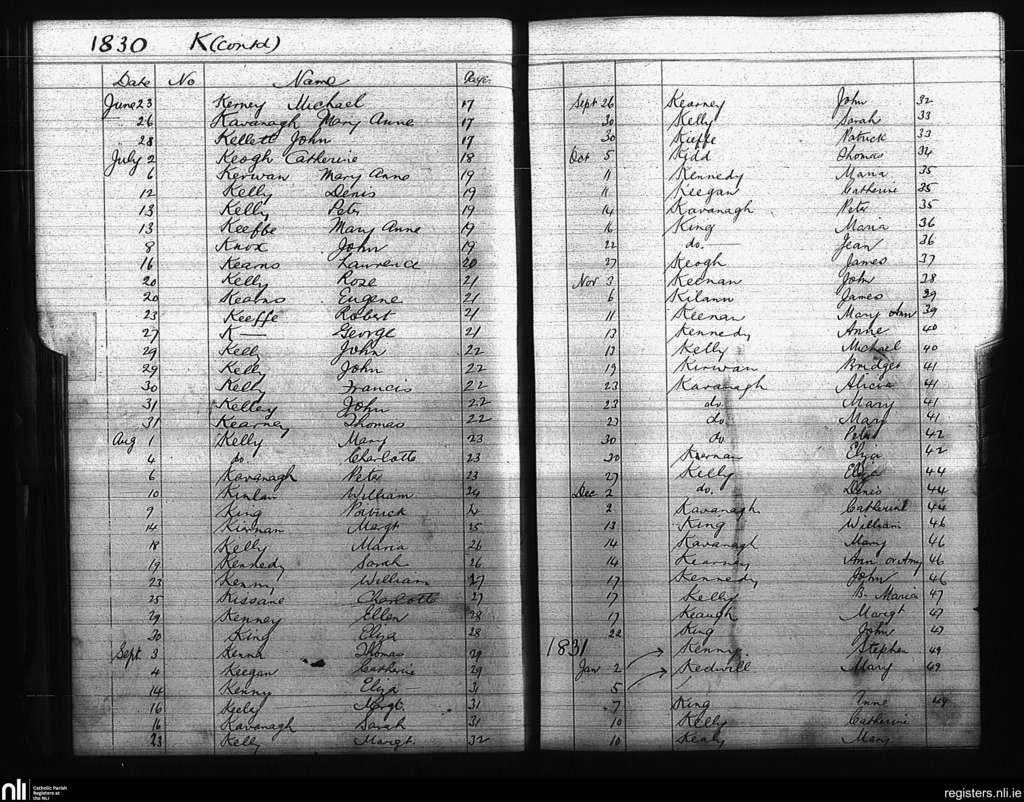 1830 K (contd)
Date No Name Page
June 23 Kerney Michael 17
26 Kavanagh Mary Anne 17
28 Kellett John 17
July 2 Keogh Catherine 18
6 Kerwan Mary Anne 19
12 Kelly Denis 19
13 Kelly Peter 19
13 Keeffe Mary Anne 19
8 Knox John 19
16 Kearns Lawrence 20
20 Kelly Rose 21
20 Kearns Eugene 21
23 Keeffe Robert 21
27 K— George 21
29 Kelly John 22
29 Kelly John 22
30 Kelly Francis 22
31 Kelley John 22
31 Kearney Thomas 22
Aug 1 Kelly Mary 23
4 do. Charlotte 23
6 Kavanagh Peter 23
10 Kinlan William 24
9 King Patrick
14 Kirwan Margt 25
18 Kelly Maria 26
19 Kennedy Sarah 26
23 Kenny William 27
25 Kissane Charlotte 27
29 Kenney Ellen 28
30 King Eliza 28
Sept 3 Kenna Thomas 29
4 Keegan Catherine 29
14 Kenny Eliza 31
16 Keely Margt. 31
16 Kavanagh Sarah 31
23 Kelly Margt. 32
Sept 26 Kearney John 32
30 Kelly Sarah 33
30 Kieffe Patrick 33
Oct 5 Kidd Thomas 34
11 Kennedy Maria 35
11 Keegan Catherine 35
14 Kavanagh Peter 35
16 King Maria 36
22 do.— Jean 36
27 Keogh James 37
Nov 3 Keenan John 38
6 Kilann James 39
11 Keenan Mary Ann 39
13 Kennedy Anne 40
13 Kelly Michael 40
19 Kirwan Bridget 41
23 Kavanagh Alicia 41
23 do. Mary 41
23 do Mary 41
30 do Peter 42
30 Kiernan Eliza 42
27 Kelly Eliza 44
Dec 2 do. Denis 44
2 Kavanagh Catherine 44
13 King William 46
14 Kavanagh Mary 46
14 Kearney Ann or Amy 46
17 Kennedy John 46
17 Kelly B. Maria 47
17 Keaugh Margt 47
22 King John 47
1831 Kenny. Stephen 49
Jan 2 Kedwill Mary 49
5
7 King Anne 49
10 Kelly Catherine
10 Kealy Mary
nli Catholic Parish Registers at the NLI
registers.nli.ie